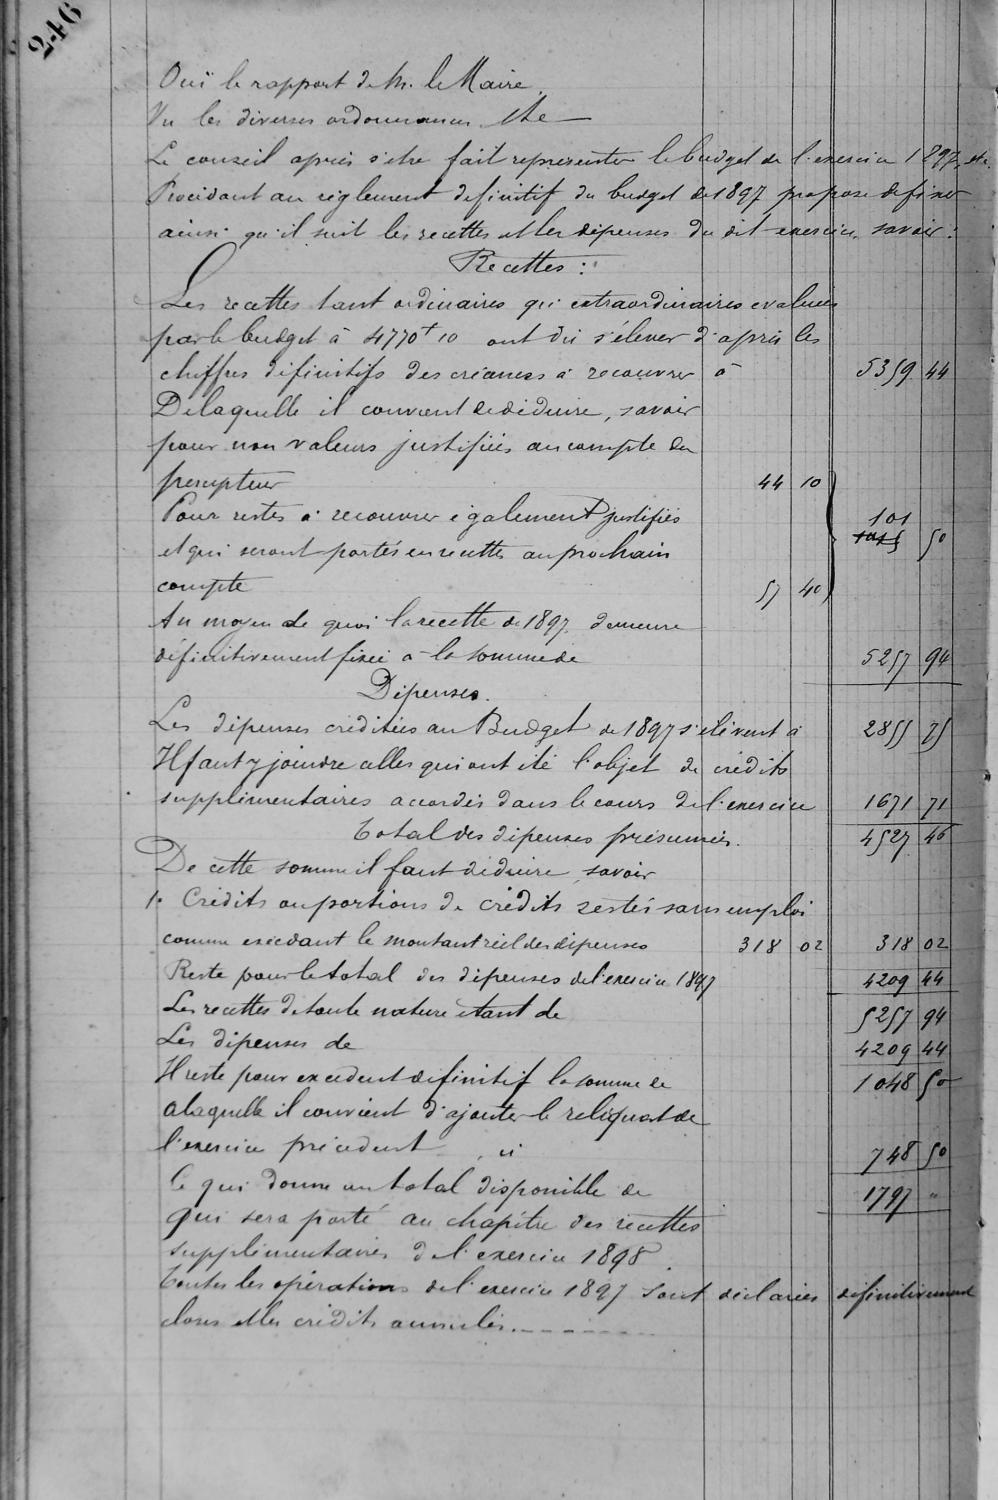 246
Ouï le rapport de M. le Maire.
Vu les diverses ordonnances &e —
Le conseil après s'être fait representer le budget de l'exercice 1897, etc.
Procédant au réglement définitif du budget de 1897 propose de fixer
ainsi qu'il suit les recettes et les dépenses du dit exercice, savoir :
Recettes :
Les recettes tant ordinaires qu' extraordinaires evaluées
par le budget à 4770 f 10 ont dû s'élever d'après les
chiffres définitifs des créances à recouvrer à 5359 44
De laquelle il convient de déduire, savoir
pour non valeurs justifiées au compte du
percepteur 44 10
Pour restes à recouvrer également justifiés
101 50
et qui seront portés en recettes au prochain
compte 57 40
Au moyen de quoi la recette de 1897 demeure
définitivement fixée à la somme de 5257 94
Dépenses.
Les dépenses créditées au Budget de 1897 s'élèvent à 2855 75
Il faut y joindre celles qui ont été l'objet de crédits
supplémentaires accordés dans le cours de l'exercice 1671 71
Total des dépenses présumées. 4527 46
De cette somme il faut déduire, savoir
1° Crédits ou portions de crédits restés sans emploi
comme excédant le montant réel des dépenses 318 02 318 02
Reste pour le total des dépenses de l'exercice 1897 4209 44
Les recettes de toute nature étant de 5257 94
Les dépenses de 4209 44
Il reste pour excédent définitif la somme de 1048 50
a laquelle il convient d'ajouter le reliquat de
l'exercice précédent ci 748 50
Ce qui donne un total disponible de 1797 "
qui sera porté au chapitre des recettes
supplémentaires de l'exercice 1898.
Toutes les opérations de l'exercice 1897 sont déclarées définitivement
closes et les crédits annulés. - - - - - - - -